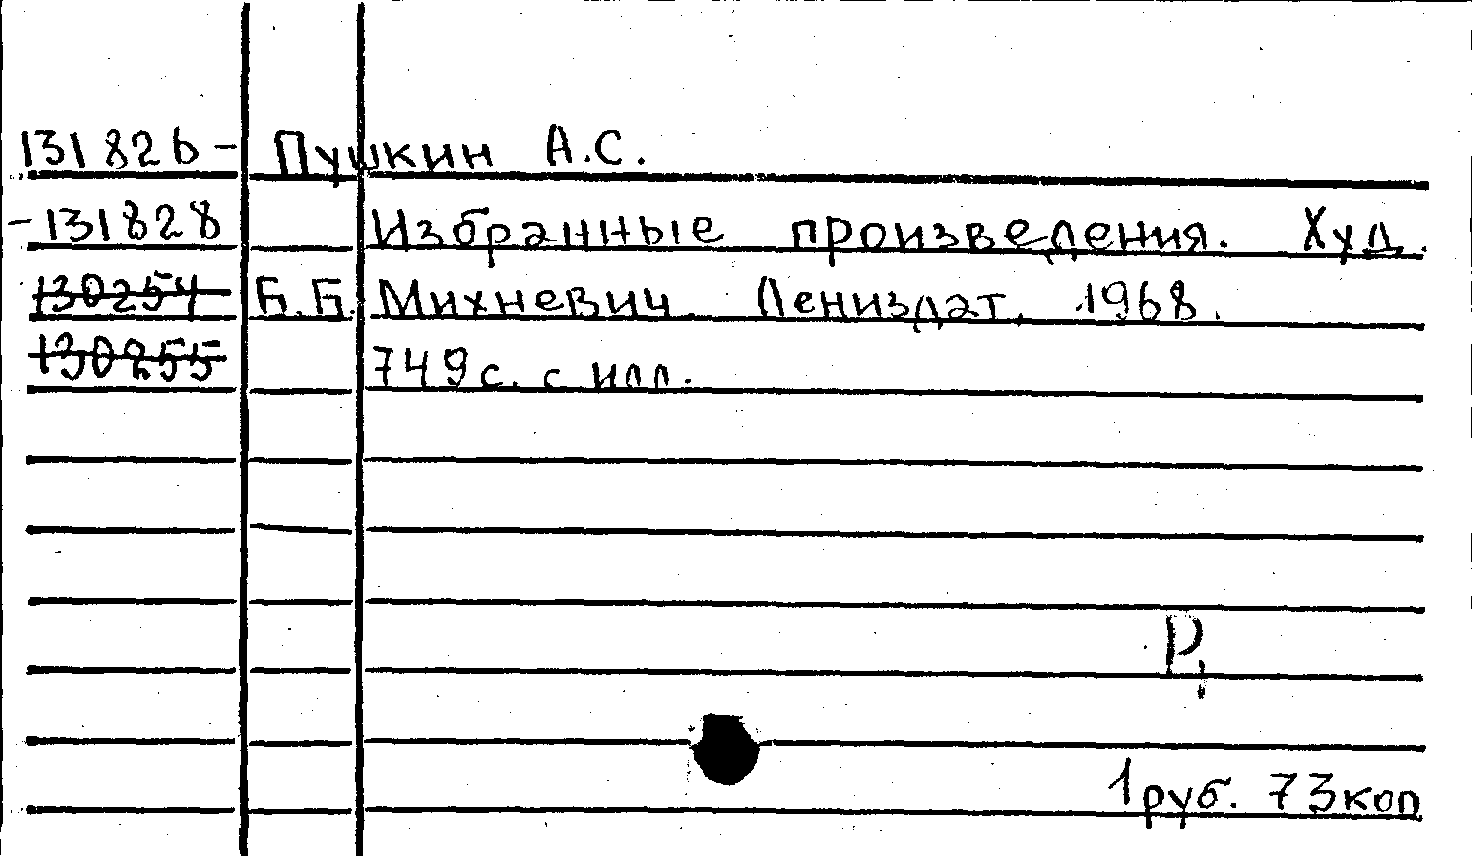 131826- Пушкин А.С.
-131828 Избранные произведения. Худ.
130254 Б.Б. Михневич. Лениздат, 1968.
130255 749 с. с илл.
Р,
1 руб. 73 коп